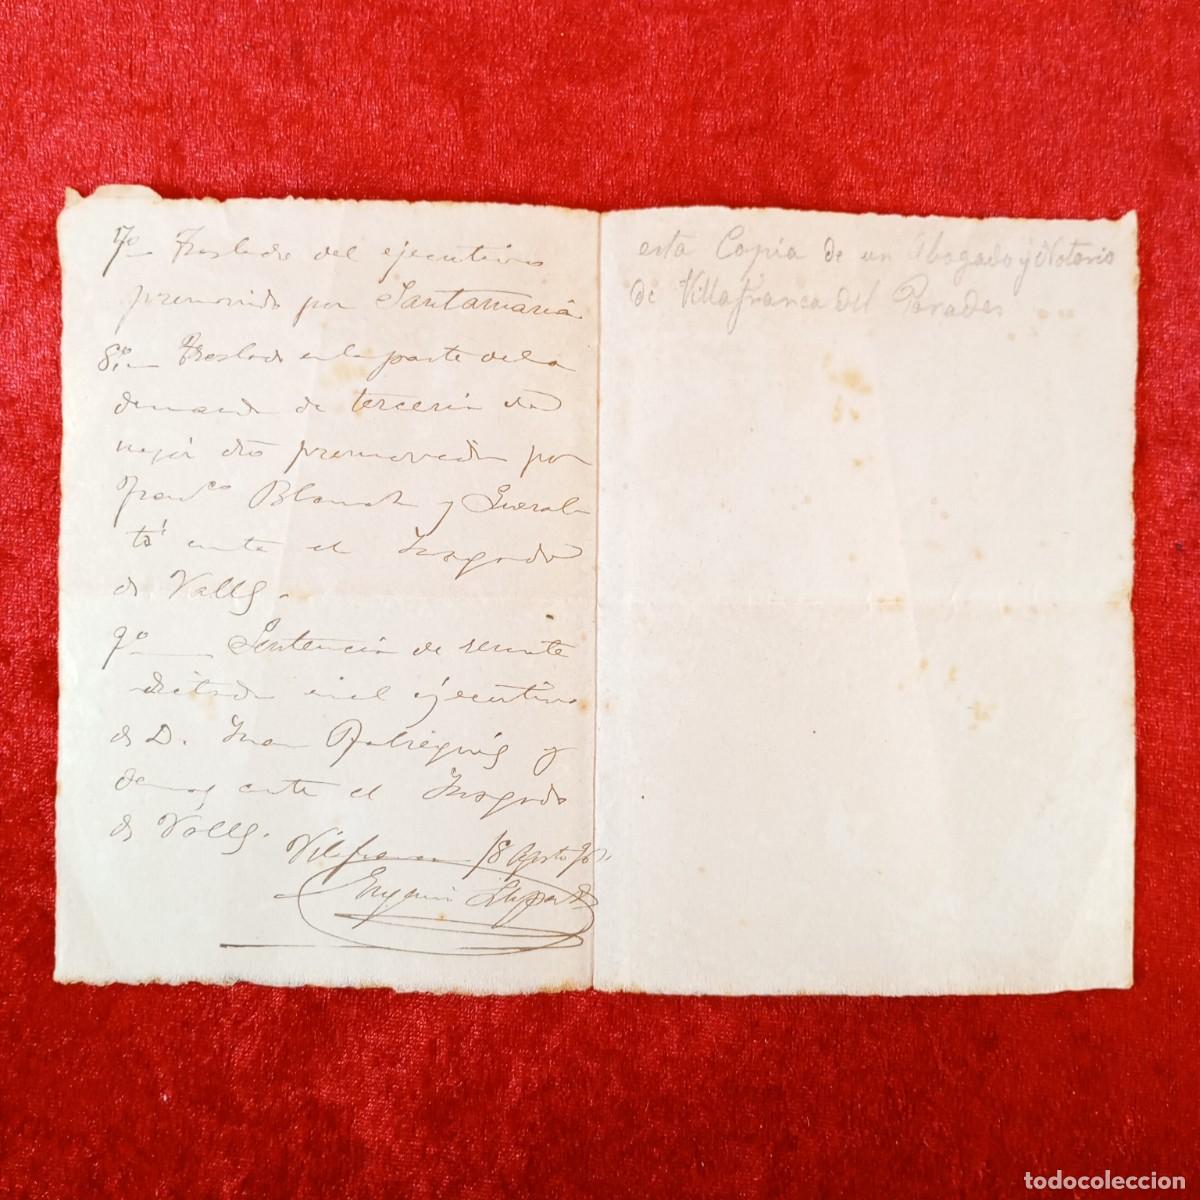 7º Traslado del ejecutivo
promovido por Santamaria
8º Traslado en la parte de la
demanda de terceria de
mejor dro promovida por
Franco Blanch y Gueral
tó ante el Juzgado
de Valls.
9º Sentencia de remate
dictada en el ejecutivo
de D. Juan y
demas ante el Juzgado
de Valls.
Vilafranca 18 Agosto 96.
esta Copia de un Abogado y Notario
de Villafranca del Panades
todocoleccion